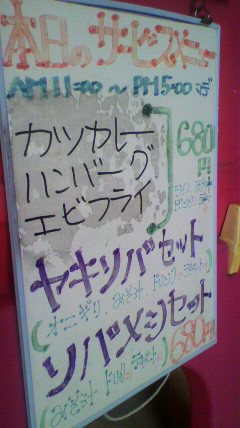 本日のサービスメニュー
AM11:00 ~ PM5:00 迄
カツカレー
ハンバーグ
エビフライ
680円
ヤキソバセット
(オニギリ、みそ汁、ドリンク
ソバメシセット
(みそ汁 ドリンク
680円